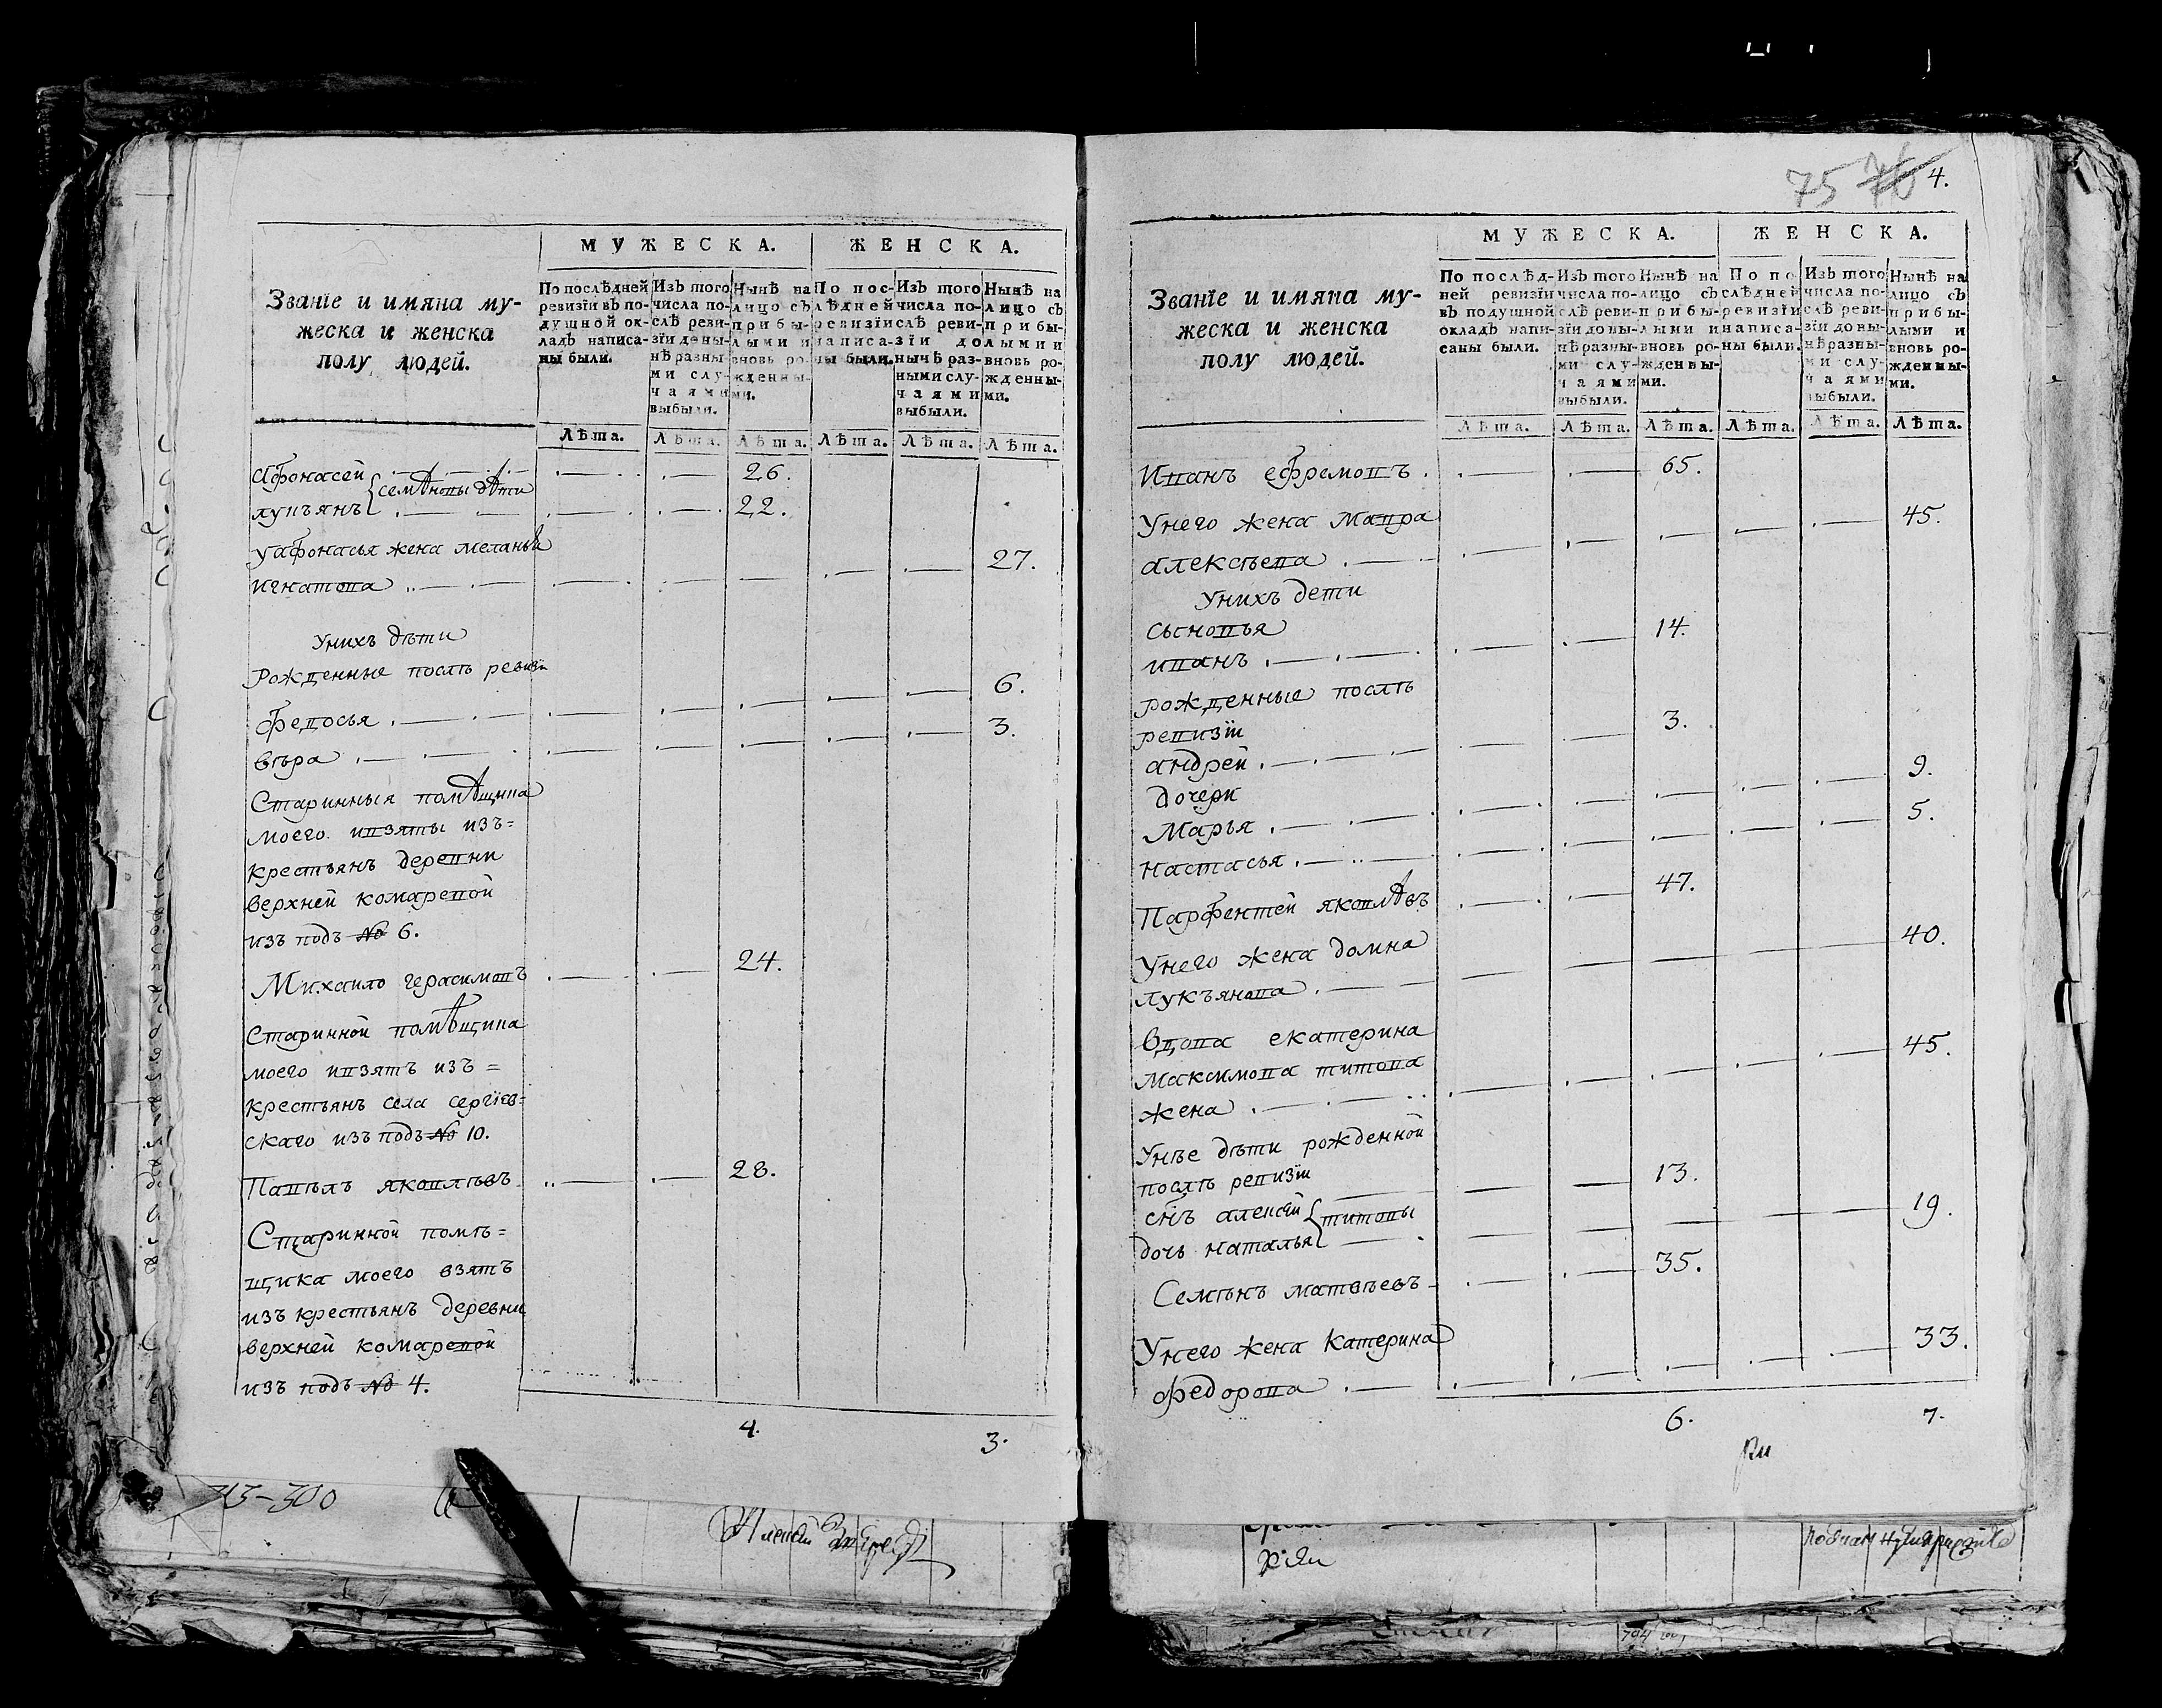 МУЖЕСКА. ЖЕНСКА.
Званїе и имяна му-
жеска и женска
полу людей.
По послѣдней ревизїи въ по-душной ок-ладъ написа-ны были.
Изъ того числа по-слѣ реви-зїи доны-нѣ разны-ми слу-чаями выбыли.
Нынѣ на лицо съ прибы-лыми и вновь ро-жденны-ми.
По пос-лѣдней ревизїи написа-ны были.
Изъ того числа по-слѣ реви-зїи до нынѣ раз-ными слу-чаями выбыли.
Нынѣ на лицо съ прибы-лыми и вновь ро-жденны-ми.
Лѣта. Лѣта. Лѣта. Лѣта. Лѣта. Лѣта.
Афонасей 26.
{семѣновы дѣти
лукъянъ 22.
Уафонасья жена меланья
игнатова 27.
Унихъ дѣти
Рожденные послѣ ревизи
федосья 6.
вѣра 3.
Старинныя помѣщика
моего ивзяты изъ=
крестьянъ деревни
верхней комаревой
изъ подъ № 6.
Михаило герасимовъ 24.
Старинной помѣщика
моего ивзятъ изъ=
крестьянъ села сергїев=
скаго изъ подъ № 10.
Павѣлъ яковлѣвъ 28.
Старинной помѣ=
щика моего взятъ
изъ крестьянъ деревни
верхней комаревой
изъ подъ № 4.
4. 3.
75 76 4.
МУЖЕСКА. ЖЕНСКА.
Званїе и имяна му-
жеска и женска
полу людей.
По послѣд-ней ревизїи въ подушной окладъ напи-саны были.
Изъ того числа по-слѣ реви-зїи доны-нѣ разны-ми слу-чаями выбыли.
Нынѣ на лицо съ прибы-лыми и вновь ро-жденны-ми.
По по слѣдней ревизїи написа-ны были.
Изъ того числа по-слѣ реви-зїи доны-нѣ разны-ми слу-чаями выбыли.
Нынѣ на лицо съ прибы-лыми и вновь ро-жденны-ми.
Лѣта. Лѣта. Лѣта. Лѣта. Лѣта. Лѣта.
Иванъ ефремовъ 65.
Унего жена Мавра
алексѣева 45.
Унихъ дети
сысновья
иванъ 14.
рожденные послѣ
ревизїи
андрей 3.
дочери
Марья 9.
настасья 5.
Парфентей яковлѣвъ 47.
Унего жена домна
лукъянова 40.
вдова екатерина
максимова титова
жена 45.
Унѣе дѣти рожденной
послѣ ревизїи
снъ алексѣй 13.
{титовы
дочь наталья 19.
Семѣнъ матвѣевъ 35.
Унего жена Катерина
федорова 33.
6. 7.
ри
713-300
Алексей